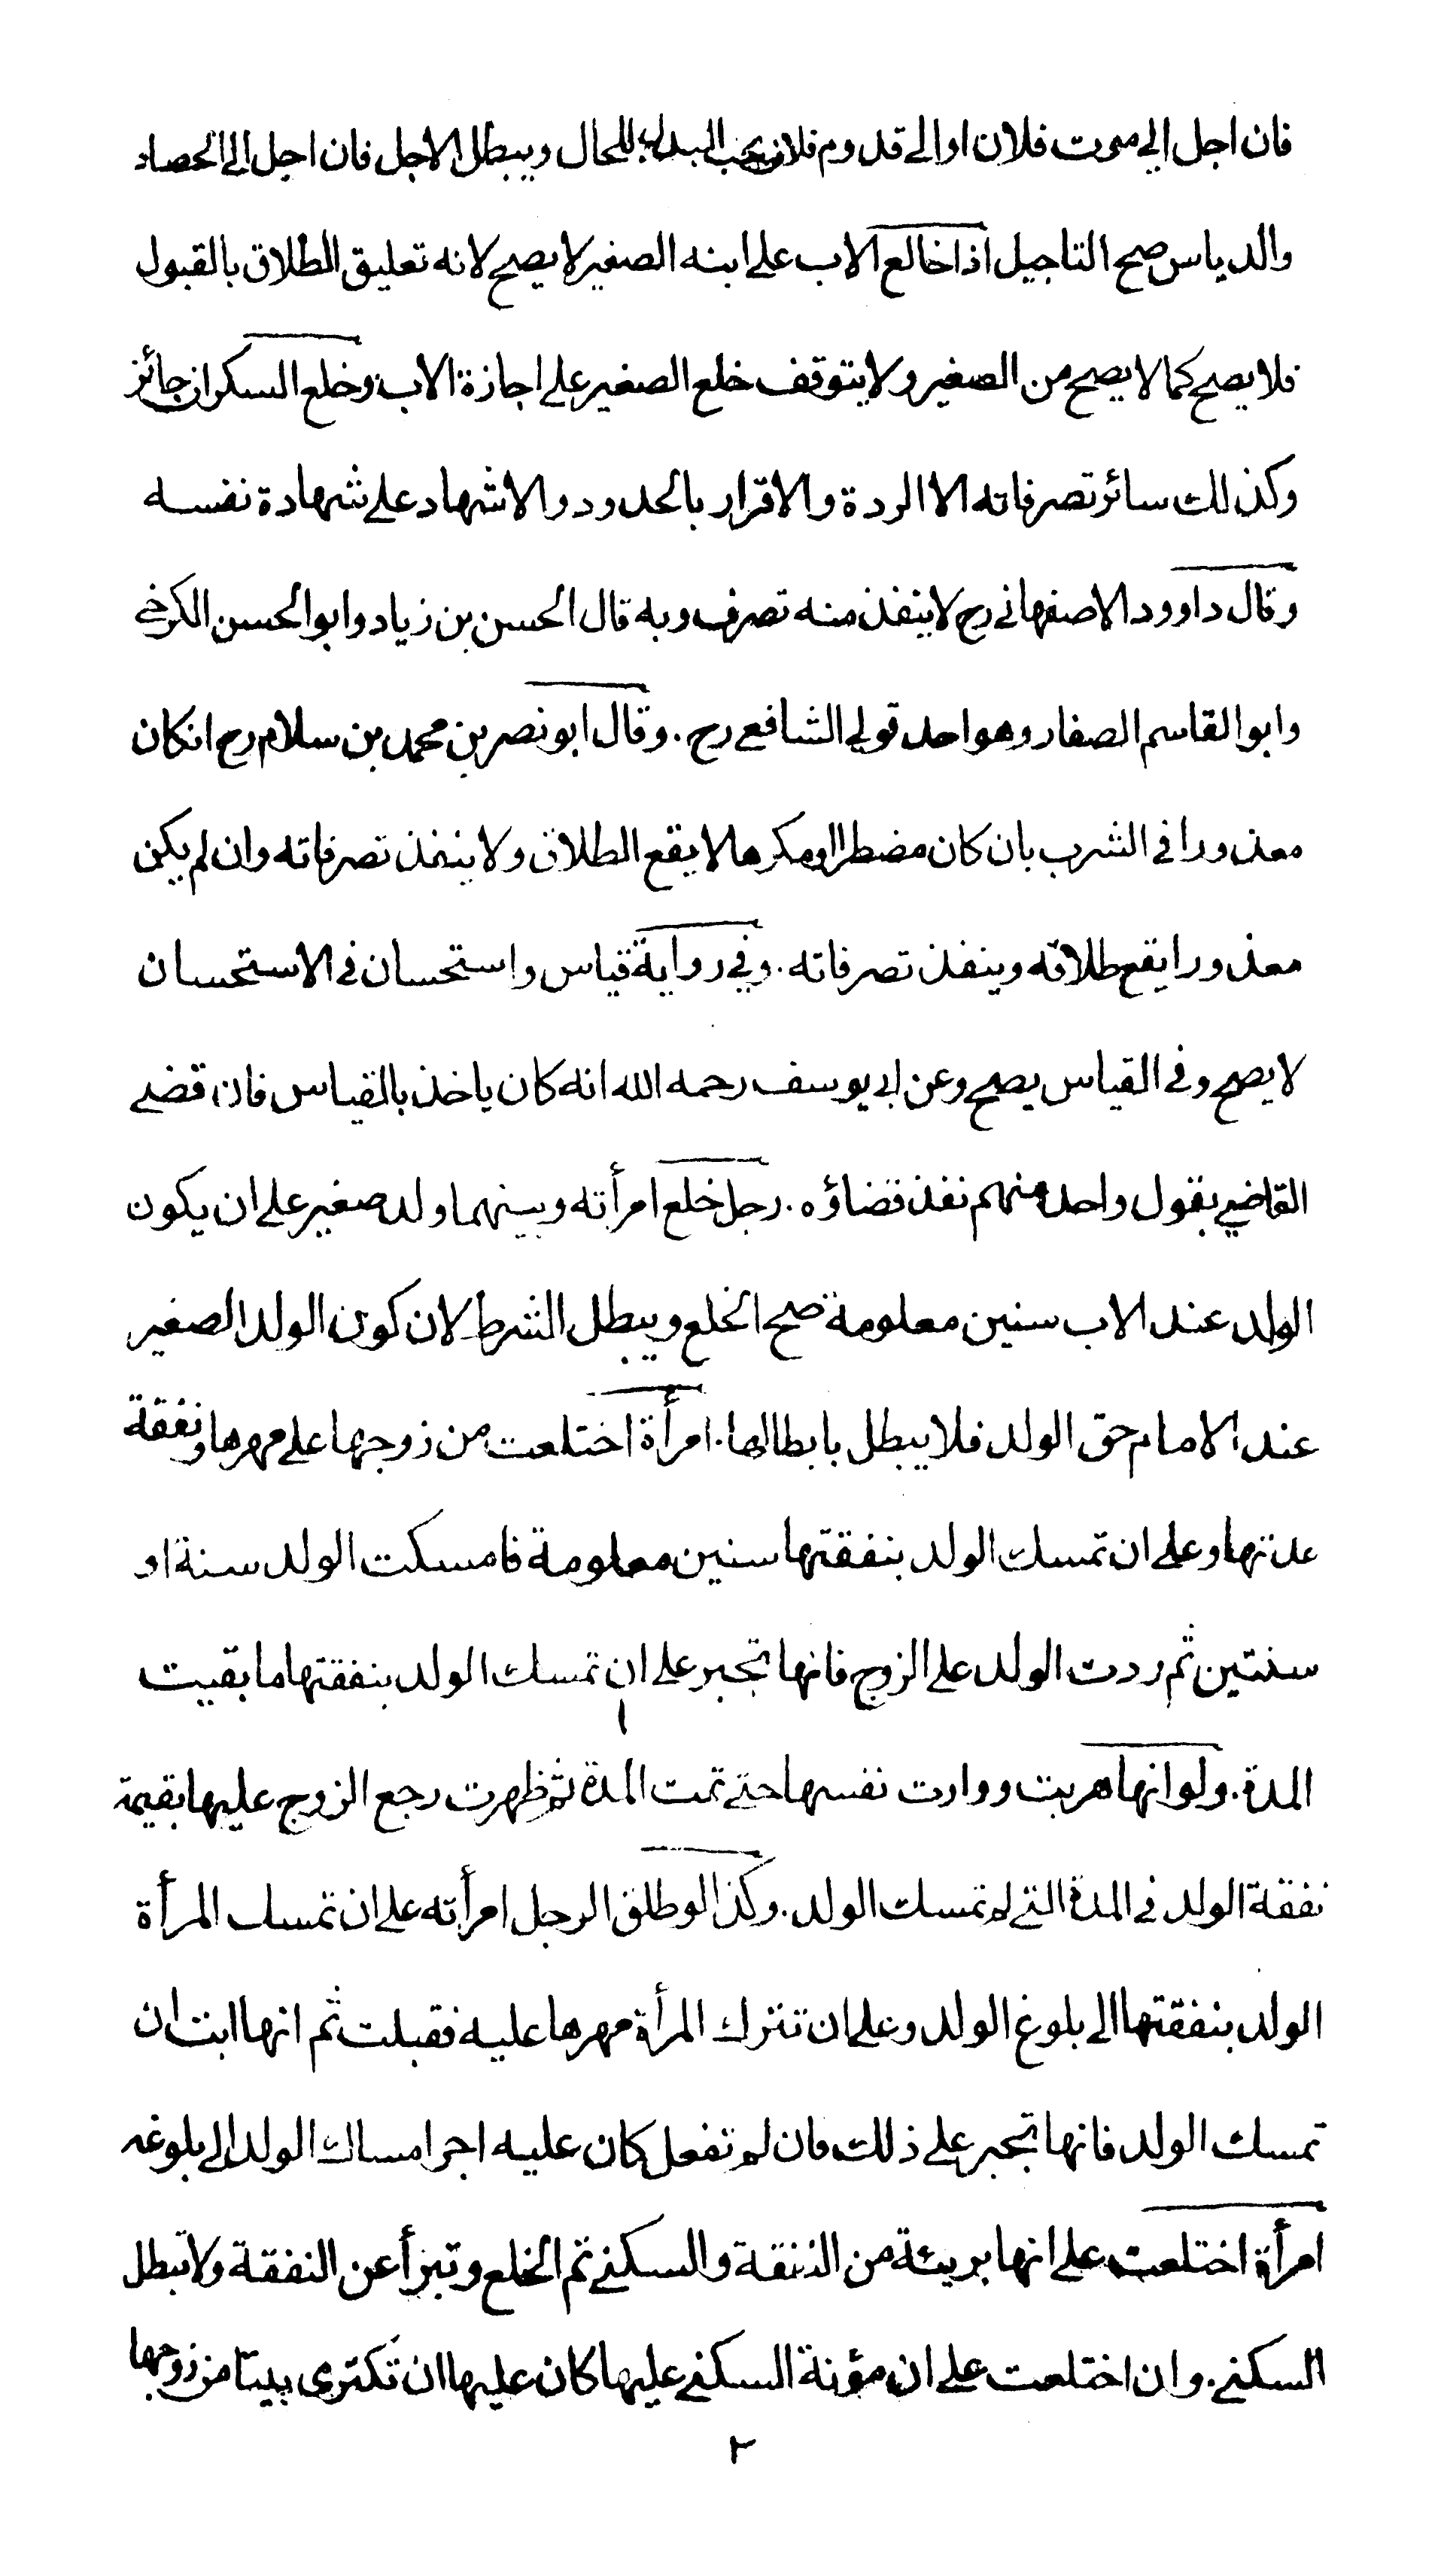 فان اجل الى موت فلان او الى قدوم فلان يجب البدل للحال ويبطل الاجل فان اجل الى الحصاد
والدياس صح التاجيل اذا خالع الاب على ابنه الصغير لا يصح لانه تعليق الطلاق بالقبول
فلا يصح كما لا يصح من الصغير ولا يتوقف خلع الصغير على اجازة الاب وخلع السكران جائز
وكذلك سائر تصرفاته الا الردة والاقرار بالحدود والاشهاد على شهادة نفسه
وقال داوود الاصفهاني رح لا ينفذ منه تصرف وبه قال الحسن بن زياد وابو الحسن الكرخي
وابو القاسم الصفار وهو احد قولي الشافعي رح . وقال ابو نصر بن محمد بن سلام رح ان كان
معذورا في الشرب بان كان مضطرا او مكرها لا يقع الطلاق ولا ينفذ تصرفاته وان لم يكن
معذورا يقع طلاقه وينفذ تصرفاته . وفي رواية قياس واستحسان في الاستحسان
لا يصح وفي القياس يصح وعن ابي يوسف رحمه الله انه كان ياخذ بالقياس فان قضى
القاضي بقول واحد منهم نفذ قضاؤه . رجل خلع امرأته وبينهما ولد صغير على ان يكون
الولد عند الاب سنين معلومة صح الخلع ويبطل الشرط لان كون الولد الصغير
عند الامام حق الولد فلا يبطل بابطالها . امرأة اختلعت من زوجها على مهرها ونفقة
عدتها وعلى ان تمسك الولد بنفقتها سنين معلومة فامسكت الولد سنة او
سنتين ثم ردت الولد على الزوج فانها تجبر على ان تمسك الولد بنفقتها ما بقيت
المدة . ولو انها هربت ووارت نفسها حتى تمت المدة ثم ظهرت رجع الزوج عليها بقيمة
نفقة الولد في المدة التي لم تمسك الولد . وكذا لو طلق الرجل امرأته على ان تمسك المرأة
الولد بنفقتها الى بلوغ الولد وعلى ان تترك المرأة مهرها عليه فقبلت ثم انها ابت ان
تمسك الولد فانها تجبر على ذلك فان لم تفعل كان عليه اجر امساك الولد الى بلوغه
امرأة اختلعت على انها بريئة من النفقة والسكنى تم الخلع وتبرأ عن النفقة ولا تبطل
السكنى . وان اختلعت على ان مؤنة السكنى عليها كان عليها ان تكتري بيتا من زوجها
٢